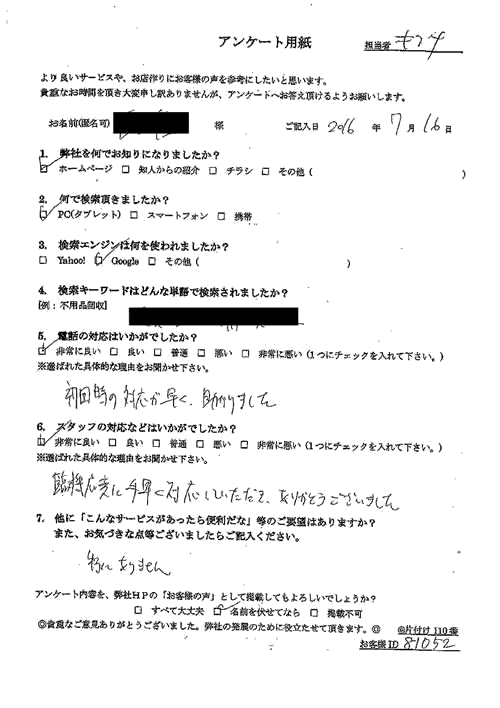 アンケート用紙
担当者
より良いサービスや、お店作りにお客様の声を参考にしたいと思います。
貴重なお時間を頂き大変申し訳ありませんが、アンケートへお答え頂けるようお願いします。
お名前(匿名可) 様 ご記入日 2016 年 7 月 16 日
1. 弊社を何でお知りになりましたか?
☑ ホームページ □ 知人からの紹介 □ チラシ □ その他 ( )
2. 何で検索頂きましたか?
☑ PC(タブレット) □ スマートフォン □ 携帯
3. 検索エンジンは何を使われましたか?
□ Yahoo! ☑ Google □ その他 ( )
4. 検索キーワードはどんな単語で検索されましたか?
[例:不用品回収]
5. 電話の対応はいかがでしたか?
☑ 非常に良い □ 良い □ 普通 □ 悪い □ 非常に悪い (1つにチェックを入れて下さい。)
※選ばれた具体的な理由をお聞かせ下さい。
初回時の対応が早く、助かりました
6. スタッフの対応などはいかがでしたか?
☑ 非常に良い □ 良い □ 普通 □ 悪い □ 非常に悪い (1つにチェックを入れて下さい。)
※選ばれた具体的な理由をお聞かせ下さい。
臨機応変に手早く対応していただき、ありがとうございました
7. 他に「こんなサービスがあったら便利だな」等のご要望はありますか?
また、お気づきな点等ございましたらご記入ください。
特にありません
アンケート内容を、弊社HPの「お客様の声」として掲載してもよろしいでしょうか?
□ すべて大丈夫 ☑ 名前を伏せてなら □ 掲載不可
◎貴重なご意見ありがとうございました。弊社の発展のために役立たせて頂きます。◎ @片付け110番
お客様ID 81052